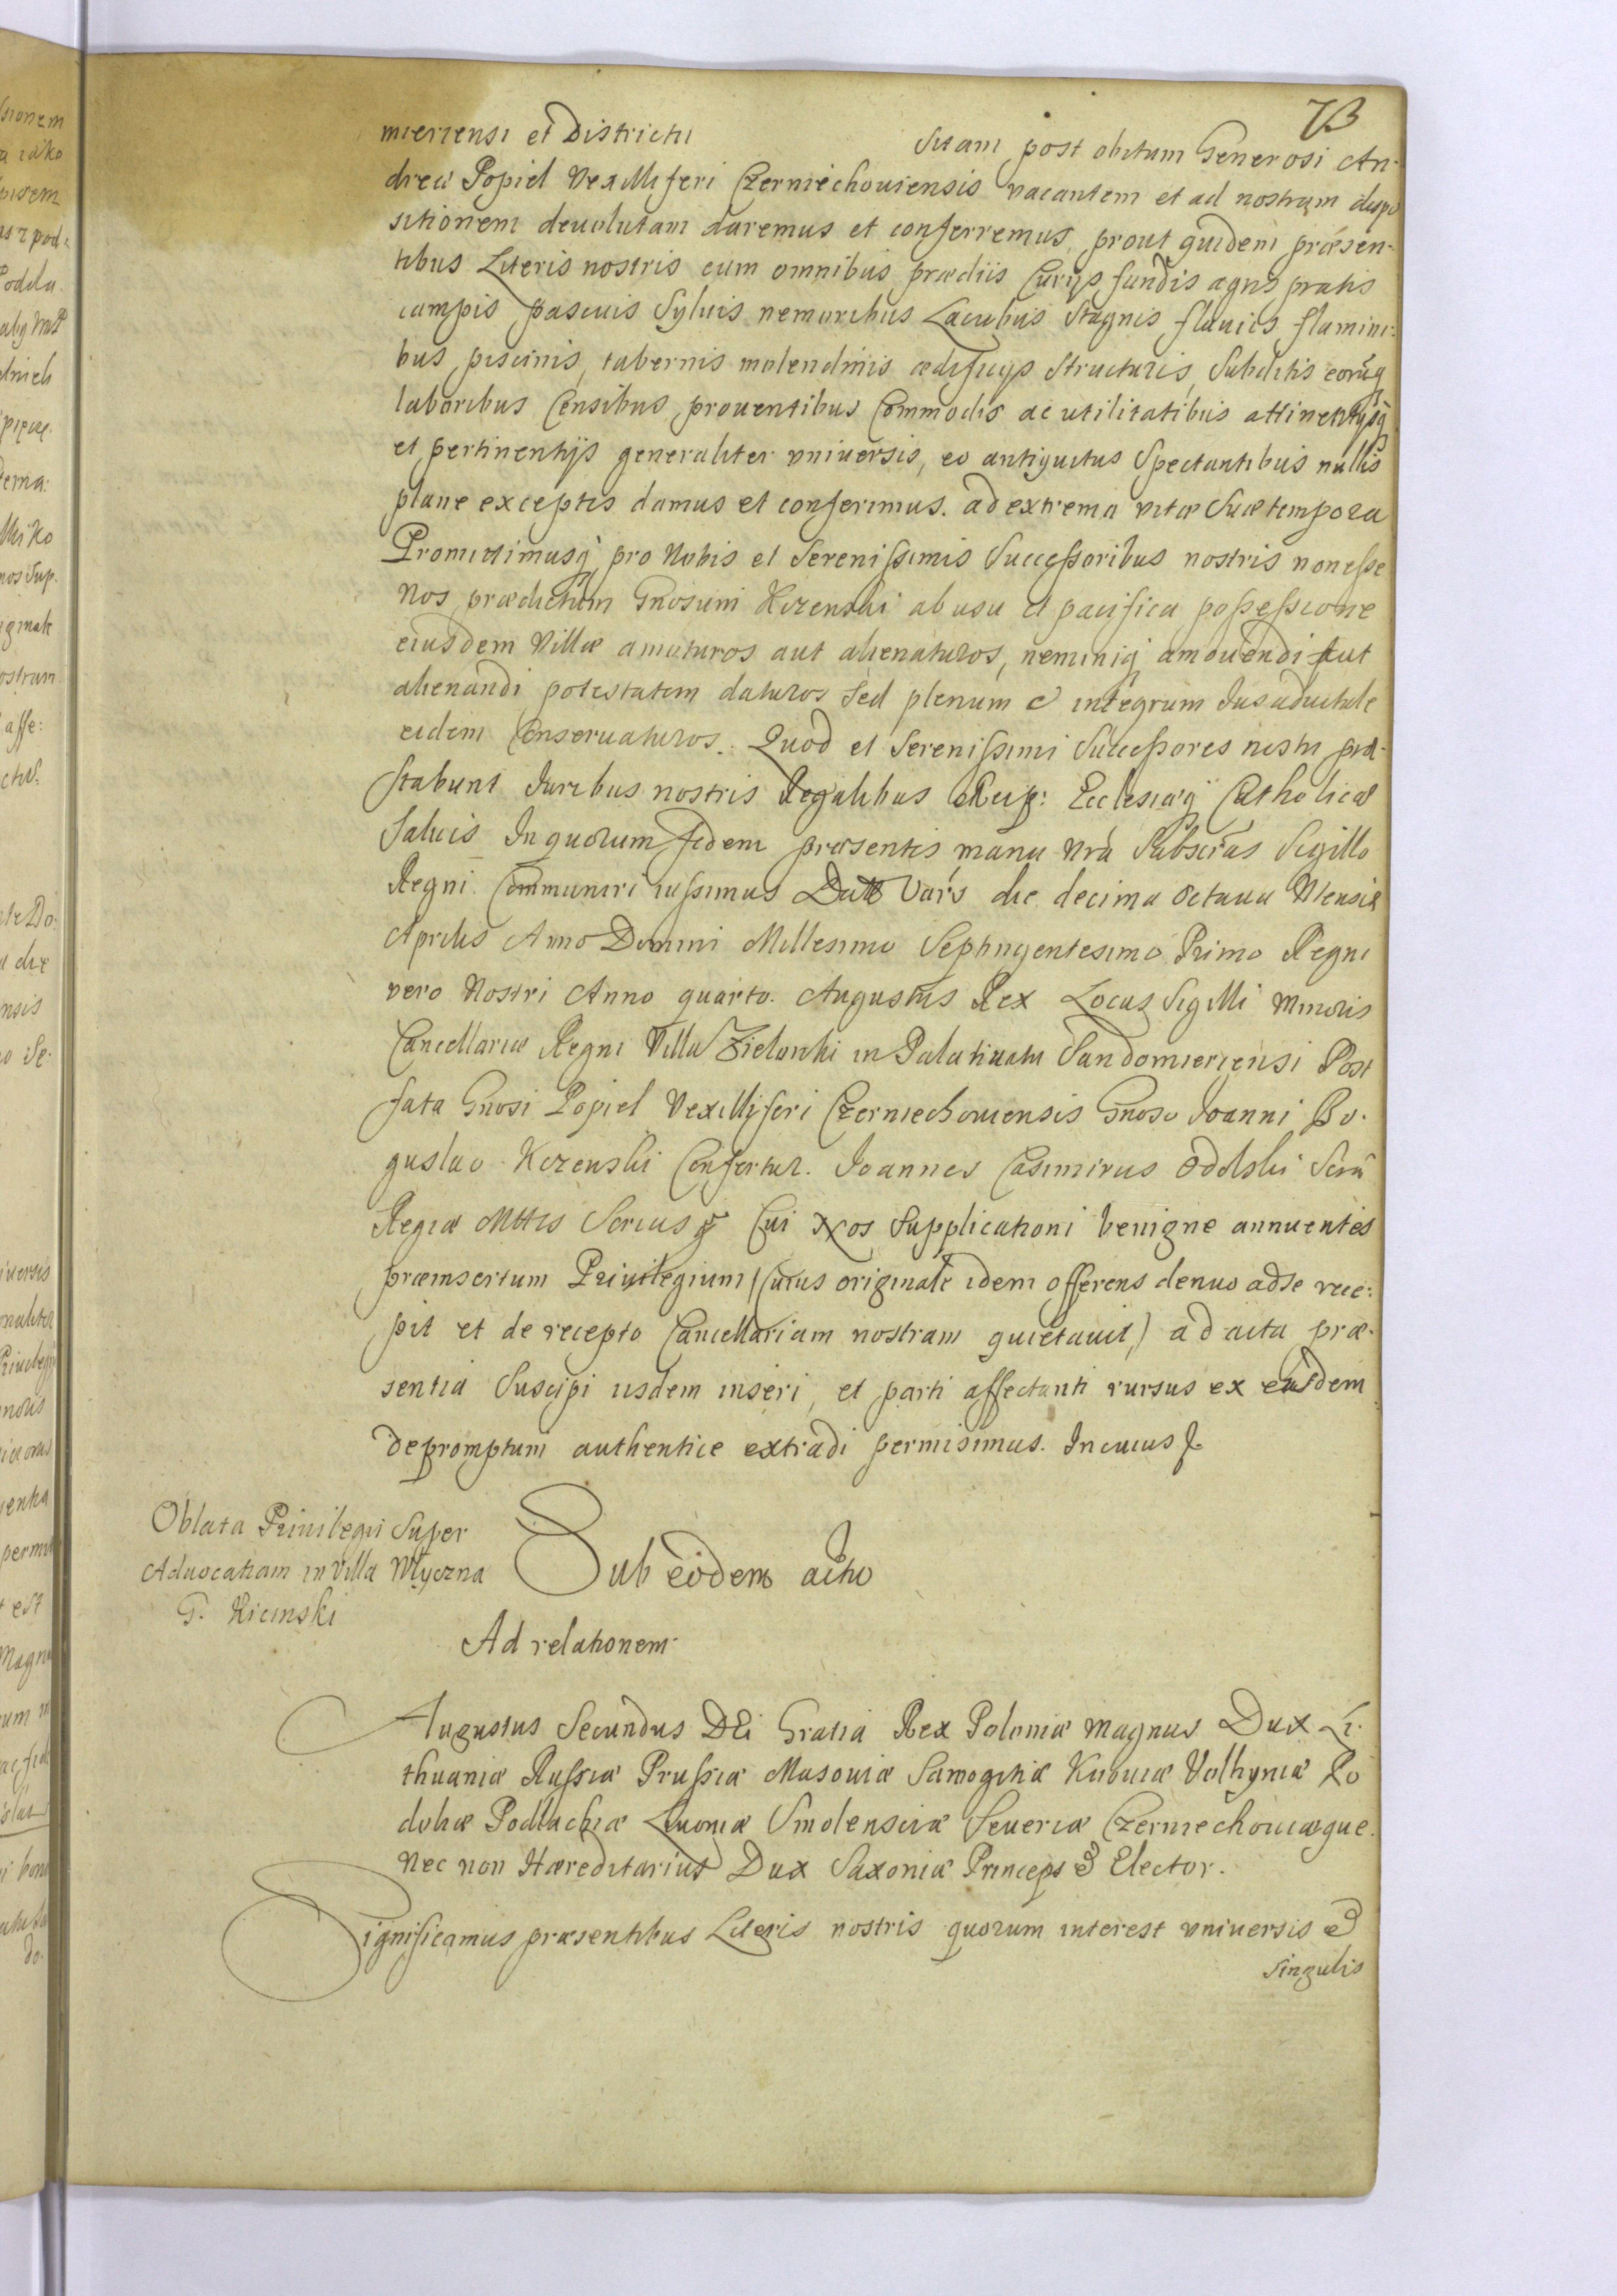 73
mieriensi et Districtu Sitam post obitum Generosi An-
dreæ Popiel Vexilliferi Czerniechouiensis vacantem et ad nostram dispo
sitionem deuolutam daremus et conferremus, prout quidem præsen-
tibus Literis nostris cum omnibus prædiis Curijs fundis agris pratis
campis pascuis Syluis nemoribus Lacubus Stagnis fluuiis flumini-
bus piscinis, tabernis molendinis ædificijs Structuris, Subditis eorūq
laboribus Censibus prouentibus Commodis ac utilitatibus attinentijsq
et pertinentijs generaliter vniuersis, eo antiquitus Spectantibus nullis
plane exceptis damus et conferimus. ad extrema vitæ Suæ tempora
Promittimusq pro Nobis et Serenissimis Successoribus nostris non esse
Nos prædictum Gnosum Krzenski ab usu et pacifica possessione
eiusdem Villæ amoturos aut alienaturos, neminiq amouendi aut
alienandi potestatem daturos Sed plenum et integrum Jus aduitale
eidem Conseruaturos. Quod et Serenissimi Successores nostri præ-
stabunt Juribus nostris Regalibus Reip: Ecclesiæq Catholicæ
Saluis In quorum fidem præsentis manu nrā Subscrās Sigillo
Regni Communiri iussimus Datt Vars die decima octaua Mensis
Aprilis Anno Domini Millesimo Septingentesimo Primo Regni
vero Nostri Anno quarto. Augustus Rex Locus Sigilli Minoris
Cancellariæ Regni Villa Zielonki in Palatinatu Sandomieriensi Post
fata Gnosi Popiel Vexilliferi Czerniechouiensis Gnoso Joanni Bo-
guslao Krzenski Confertur. Joannes Casimirus Odolski Scræ
Regiæ Mttis Scrius Cui Nos Supplicationi benigne annuentes
præinsertum Priuilegium (Cuius originale idem offerens denuo ad se rece-
pit et de recepto Cancellariam nostram quietauit) ad acta præ-
sentia Suscipi iisdem inseri, et parti affectanti rursus ex eisdem
depromptum authentice extradi permisimus. In cuius
Oblata Priuilegii Super
Aduocatiam in Villa Młyczna
G. Kicinski
Sub eodem actu
Ad relationem
Augustus Secundus DEi Gratia Rex Poloniæ Magnus Dux Li-
thuaniæ Russiæ Prussiæ Masouiæ Samogitiæ Kiiouiæ Volhyniæ Po
doliæ Podlachiæ Liuoniæ Smolensciæ Seueriæ Czerniechouiæque
Nec non Hæreditarius Dux Saxoniæ Princeps & Elector.
Significamus præsentibus Literis nostris quorum interest vniuersis et
singulis